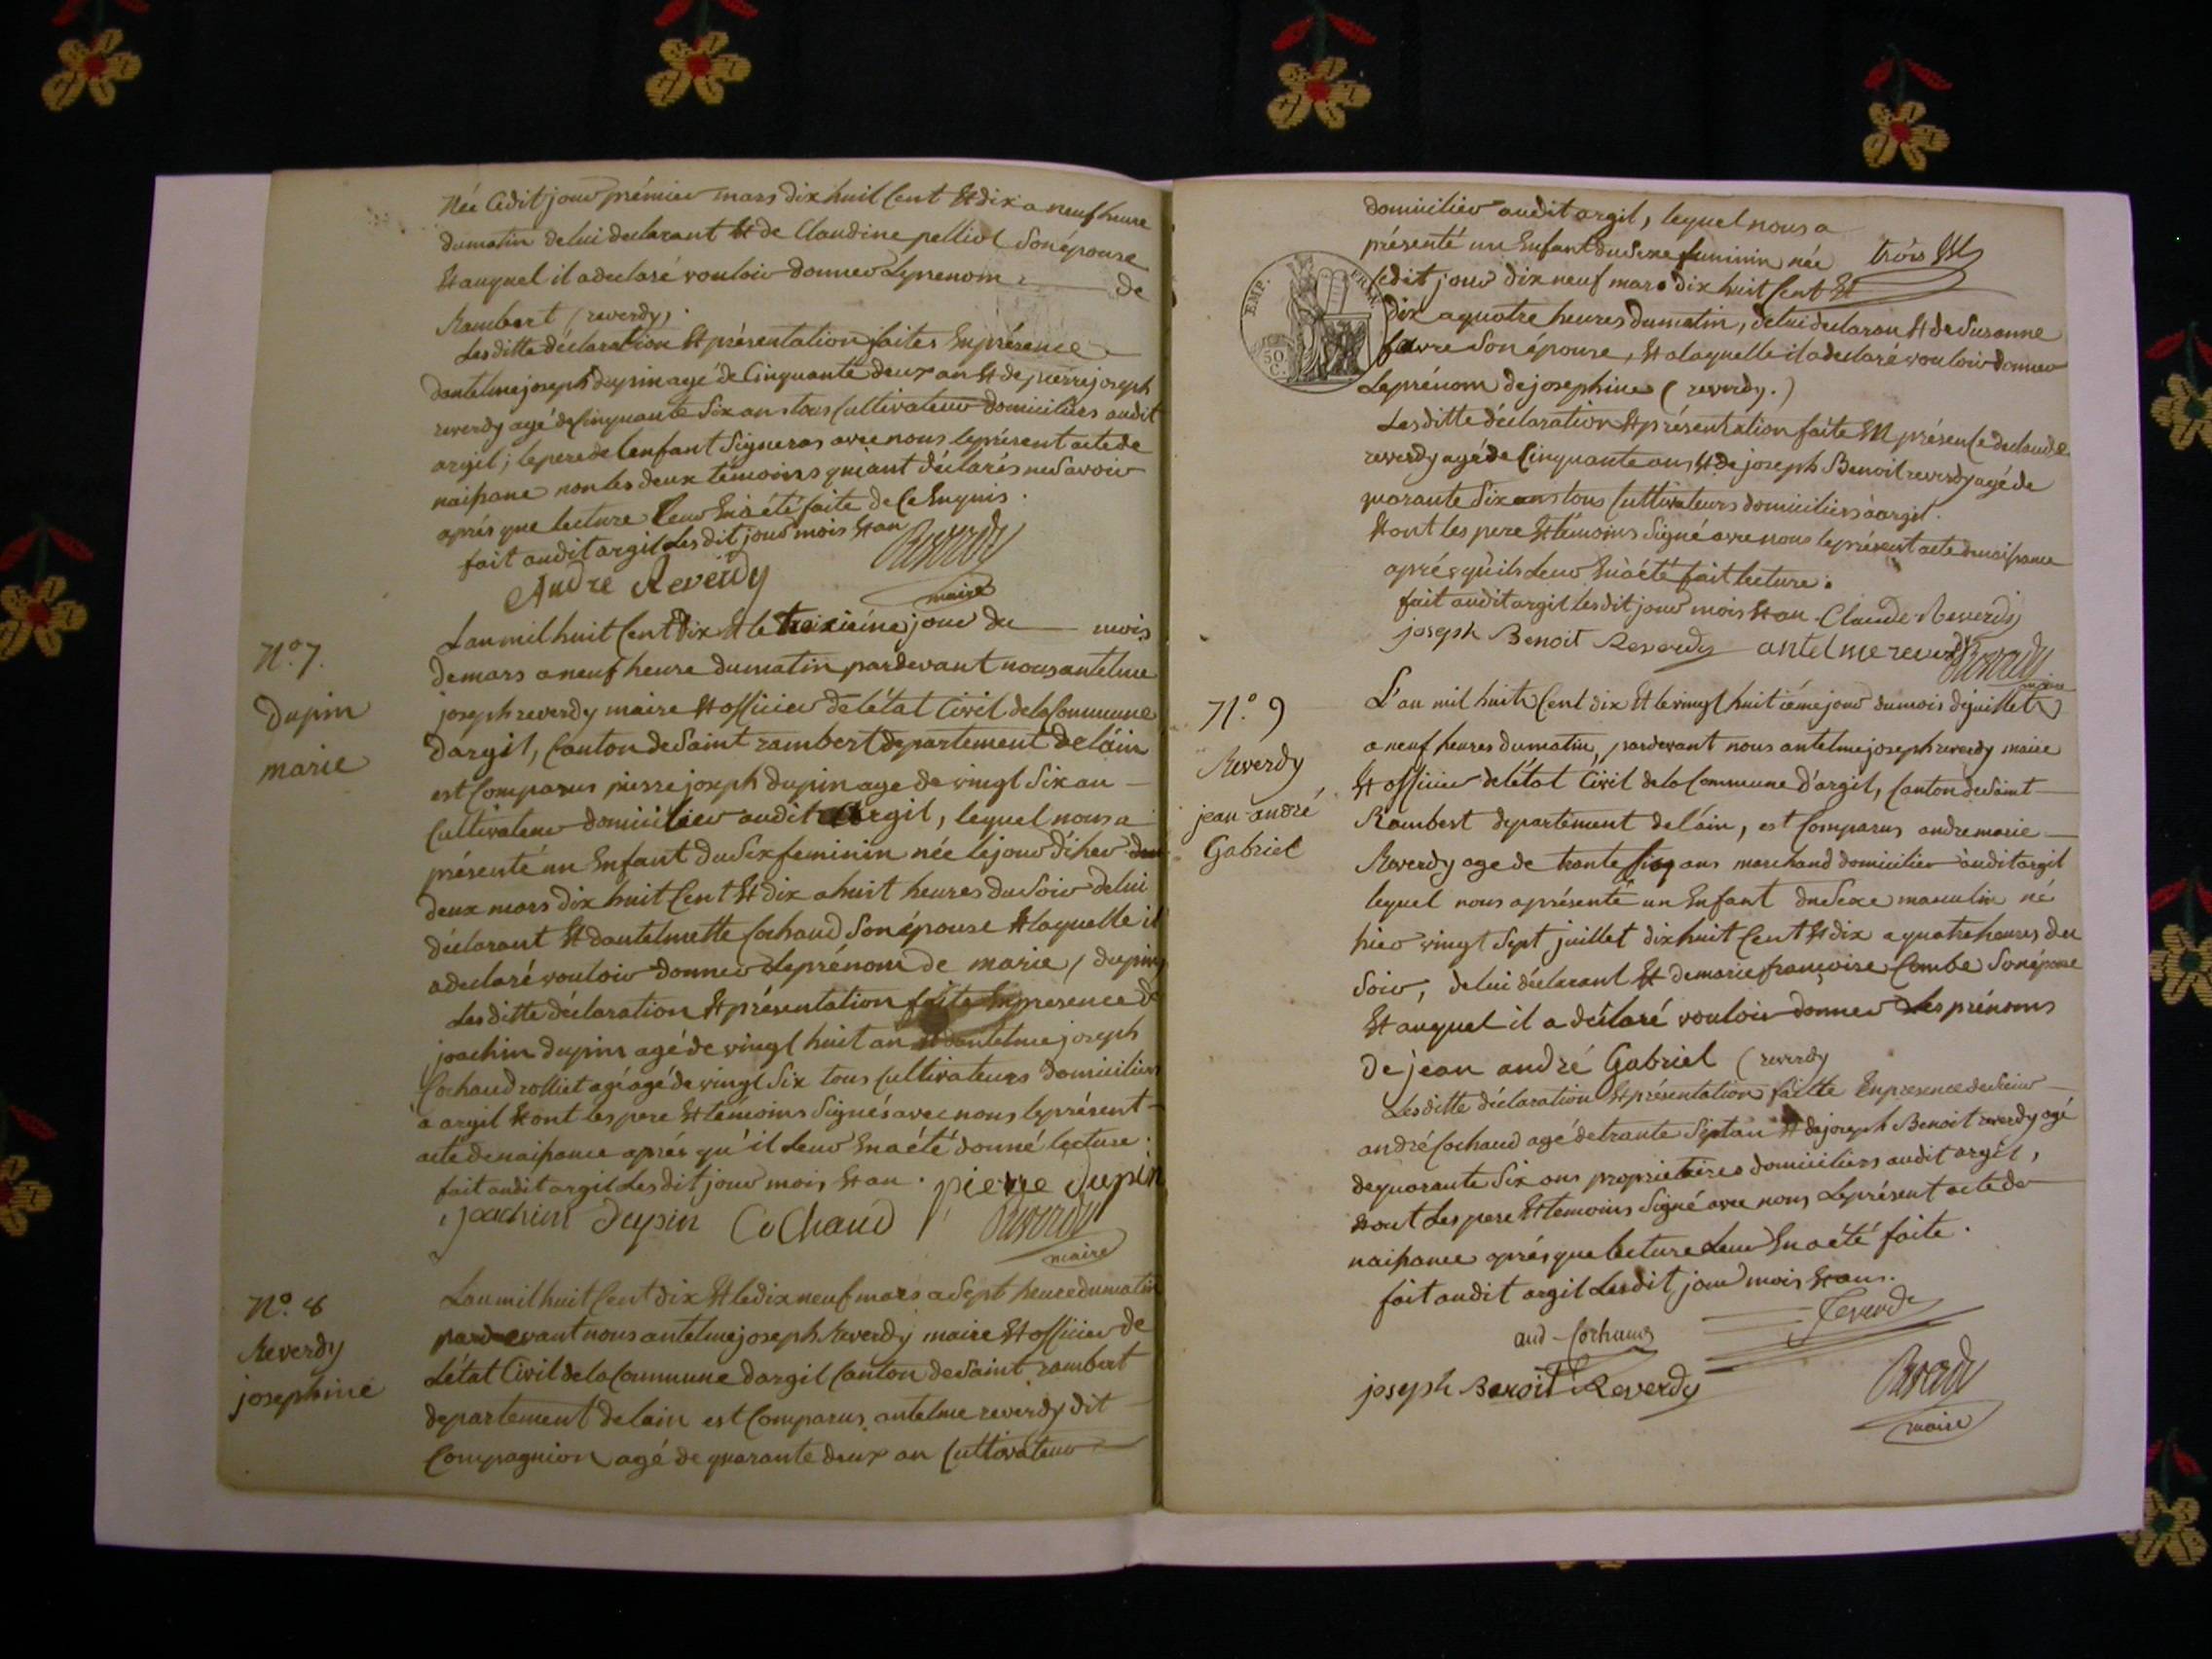 Née Cedit jour prémier mars dix huil Cent Et dix a neuf heure
dumatin delui declarant Et de Claudine pelliol Son épouse
Et auquel il adeclaré vouloir donner Lepnenom de
Rambert (reverdy).
Lesditte déclaration Et présentation faites Enprésence
dantelme joseph dupin agé de Cinquante deux an Et de pierre joseph
reverdy agé de Cinquante Six ans tous Cultivateur domiciliers audit
argil; lepere de lenfant Signeras avec nous leprésent acte de
naissance non les deux témoins quiant déclarés ne Savoir
aprés que lecture leur En a été faite de Ce Enquis.
fait audit argil Les dit jour mois Et an
Andre Reverdy Reverdy
maire
N.° 7.
dupin
marie
L'an mil huit Cent Dix Et le troixiéme jour du mois
de mars a neuf heure dumatin pardevant nous antelme
joseph reverdy maire Et officier de létat Civil dela Commune
D'argil, Canton de Saint rambert departement de láin
est Comparus pierre joseph dupin age de vingt Six an
Cultivateur domicilier audit argil, lequel nous a
présenté un Enfant du Sex feminin née lejour d'hier
deux mars dix huit Cent Et dix a huit heures du Soir delui
déclarant Et dantelmette Cochaud Son épouse Et laquelle il
adeclaré vouloir donner Leprénom de marie (dupin)
Lesditte déclaration Et présentation faite Enpresence de
joachim dupin agé de vingt huit an Et dantelme joseph
Cochaud rolliet agé agé de vingt Six tous Cultivateurs domiciliers
a argil Et ont les pere Et témoins Signés avec nous leprésent
acte de naissance aprés qu'il Leur En a été donné lecture.
fait audit argil Les dit jour mois Et an. pierre dupin
joachim Dupin CoChaud Reverdy
maire
N.° 8
Reverdy
josephine
L'an mil huit Cent dix Et ledix neuf mars a Sept heure dumatin
pardevant nous antelme joseph Reverdy maire Et officier de
Létat Civil dela Commune dargil Canton de Saint rambert
departement de lain est Comparus antelme reverdy dit
Compagnion agé de quarante deux an Cultivateur
domicilier audit argil, lequel nous a
présenté un Enfant du Sexe feminin née trois
Cedit jour dix neuf mars dix huit Cent Et
EMP. FRAN.
50 C.
dix a quatre heures dumatin, delui declaran Et de Susanne
favre Son épouse, Et a laquelle il adeclaré vouloir donner
Leprénom de josephine (reverdy.)
Lesditte déclaration Et présentation faite En présence declaude
reverdy agé de Cinquante ans Et de joseph Benoit reverdy agé de
quarante Six ans tous Cultivateurs domiciliers a argil.
Et ont les pere Et témoins Signé avec nous leprésent acte denaissance
aprés qu'ils Leur En a été fait lecture.
fait audit argil les dit jour mois Et an. Claude Reverdy
joseph Benoit Reverdy antelme reverdy Reverdy
maire
N.° 9
Reverdy
jean andré
Gabriel
L'an mil huit Cent dix Et le vingt huit iéme jour dumois dejuillet
a neuf heures dumatin, pardevant nous antelme joseph reverdy maire
Et officier de létat Civil dela Commune d'argil, Canton de Saint
Rambert departement de láin, est Comparus andre marie
Reverdy age de trante Cinq ans marchand domicilier audit argil
lequel nous aprésenté un Enfant du Sexe masculin né
hier vingt Sept juillet dix huit Cent Et dix a quatre heures du
Soir, delui déclarant Et de marie françoise Combe Son épouse
Et auquel il a déclaré vouloir donner Les prénoms
de jean andré Gabriel (reverdy
Lesditte déclaration Et présentation faitte Enpresence de Sieur
andré Cochaud agé de trante Septan Et de joseph Benoit reverdy agé
dequarante Six ans proprietaires domiciliers audit argil,
Et ont Les pere Et temoins Signé avec nous Leprésent acte de
naissance aprés que lecture Leur En a été faite.
fait audit argil Lesdit jour mois Et an.
and Cochaud Reverdy
joseph Benoit Reverdy Reverdy
maire